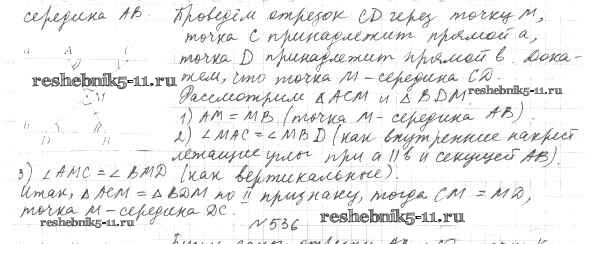 середина AB. Проведём отрезок CD через точку M,
точка C принадлежит прямой a,
точка D принадлежит прямой b. Дока-
жем, что точка M - середина CD.
reshebnik5-11.ru
reshebnik5-11.ru
Рассмотрим △ACM и △BDM.
1) AM = MB (точка M - середина AB)
2) ∠MAC = ∠MBD (как внутренние накрест
лежащие углы при a || b и секущей AB).
3) ∠AMC = ∠BMD (как вертикальные).
Итак, △ACM = △BDM по II признаку, тогда CM = MD,
точка M - середина DC.
reshebnik5-11.ru
№536
reshebnik5-11.ru